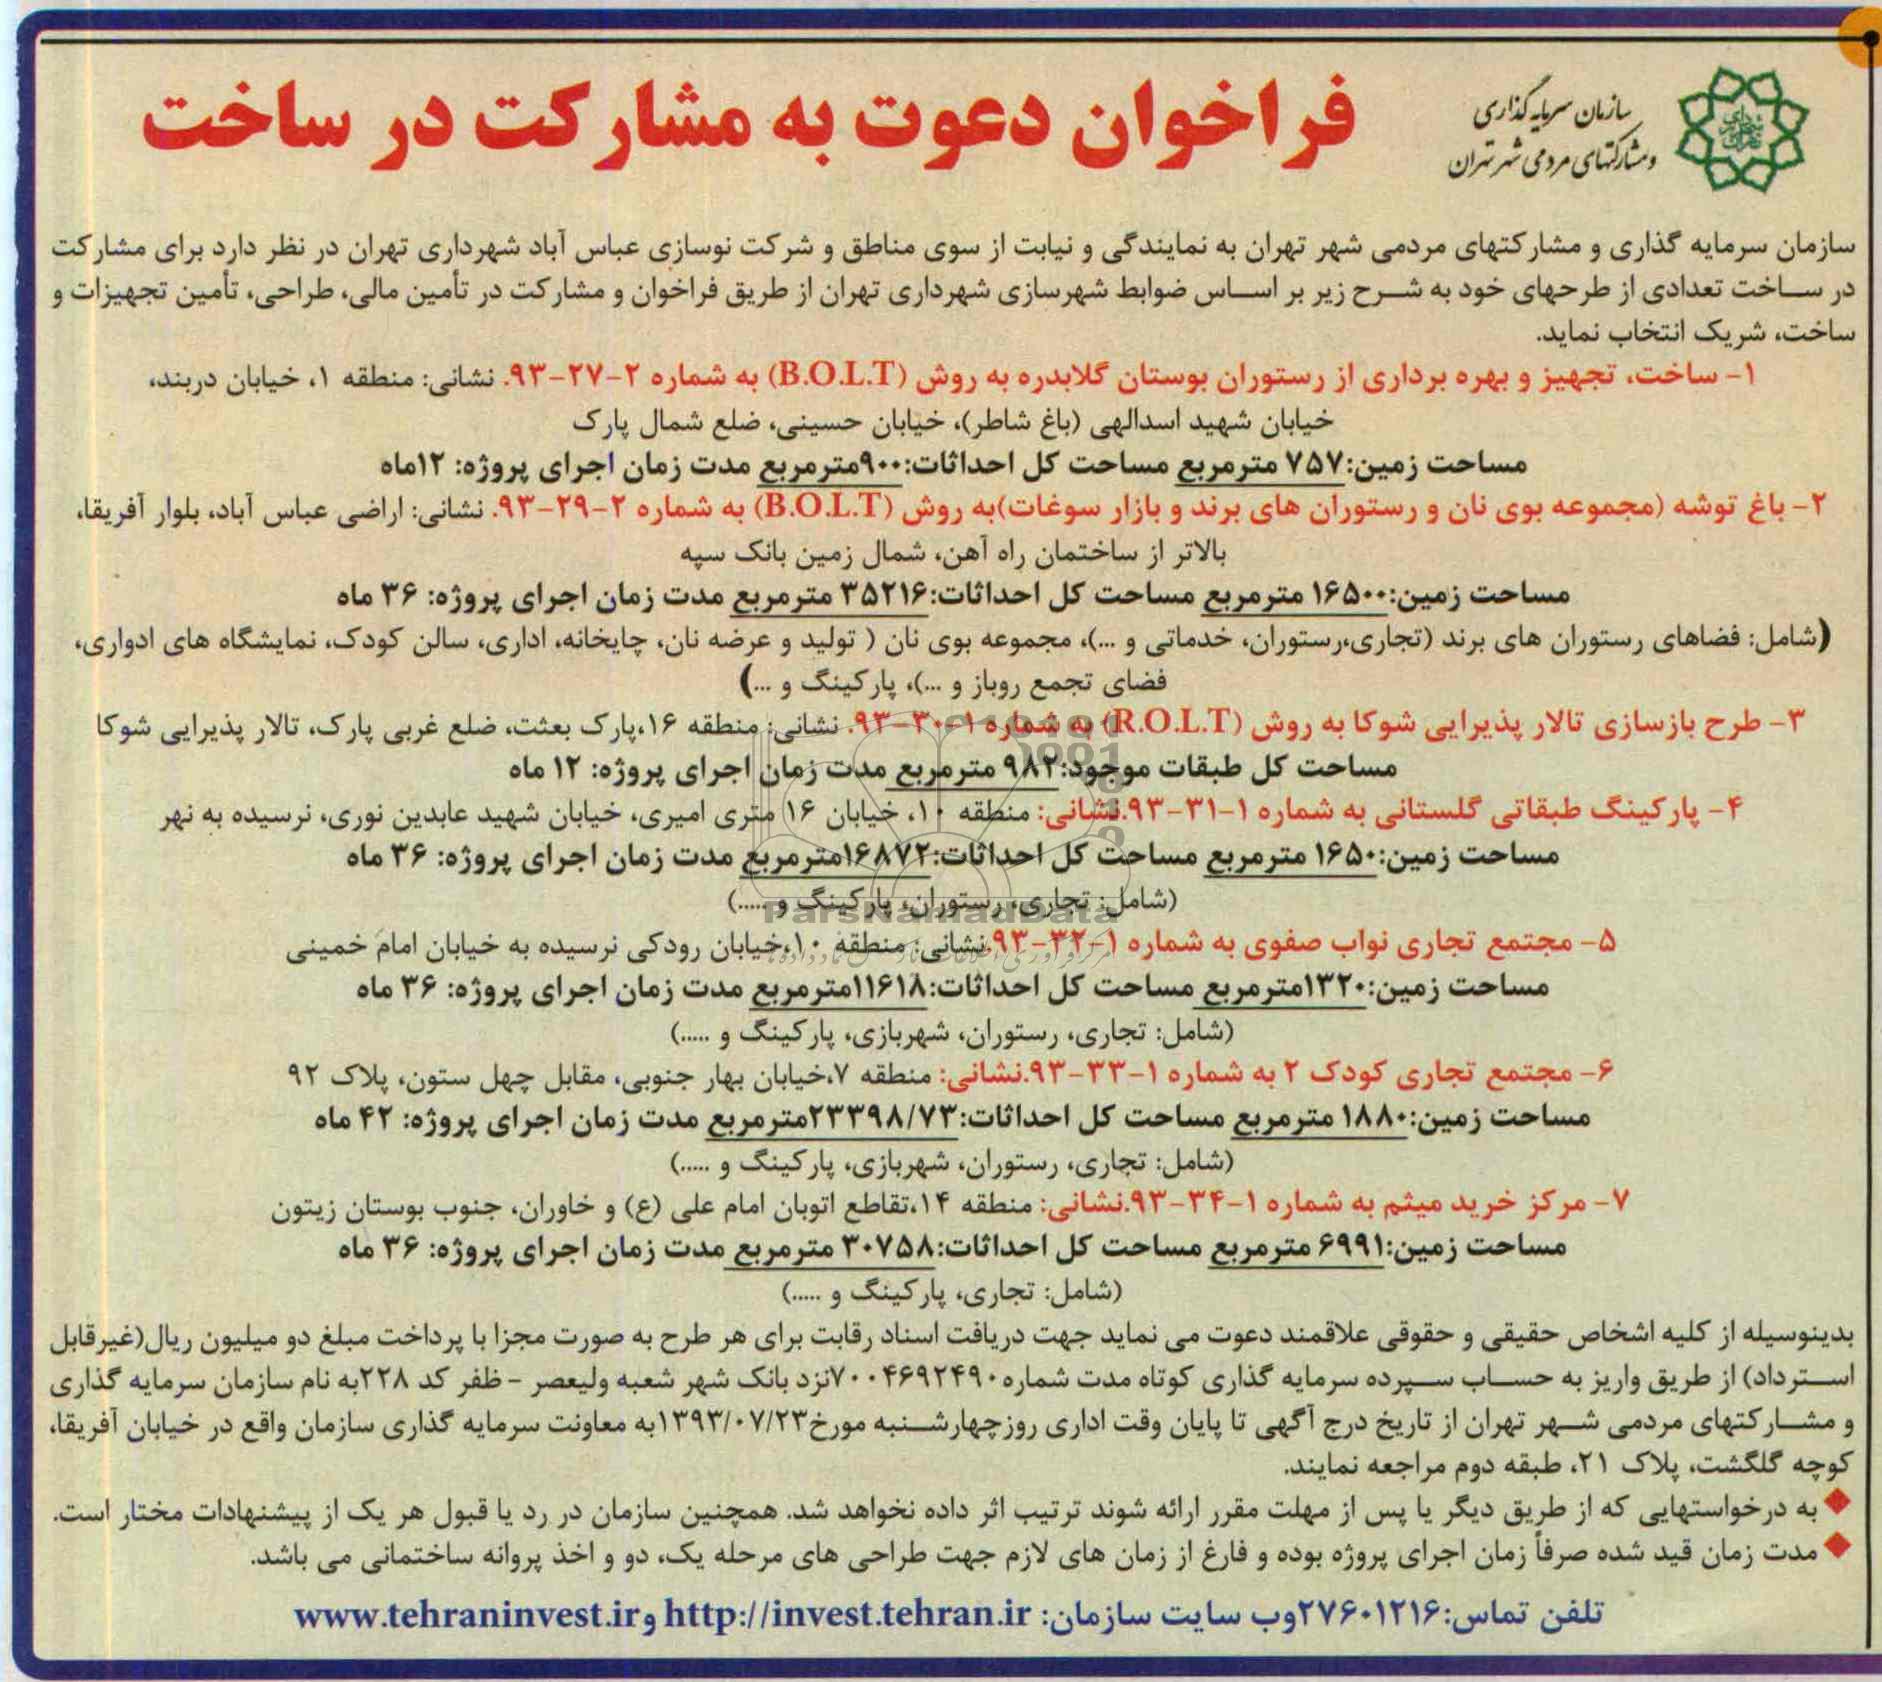 سازمان سرمایه گذاری
و مشارکتهای مردمی شهر تهران
فراخوان دعوت به مشارکت در ساخت
سازمان سرمایه گذاری و مشارکتهای مردمی شهر تهران به نمایندگی و نیابت از سوی مناطق و شرکت نوسازی عباس آباد شهرداری تهران در نظر دارد برای مشارکت
در ساخت تعدادی از طرحهای خود به شرح زیر بر اساس ضوابط شهرسازی شهرداری تهران از طریق فراخوان و مشارکت در تأمین مالی، طراحی، تأمین تجهیزات و
ساخت، شریک انتخاب نماید.
۱- ساخت، تجهیز و بهره برداری از رستوران بوستان گلابدره به روش (B.O.L.T) به شماره ۲-۲۷-۹۳. نشانی: منطقه ۱، خیابان دربند،
خیابان شهید اسدالهی (باغ شاطر)، خیابان حسینی، ضلع شمال پارک
مساحت زمین:۷۵۷ مترمربع مساحت کل احداثات:۹۰۰مترمربع مدت زمان اجرای پروژه: ۱۲ماه
۲- باغ توشه (مجموعه بوی نان و رستوران های برند و بازار سوغات)به روش (B.O.L.T) به شماره ۲-۲۹-۹۳. نشانی: اراضی عباس آباد، بلوار آفریقا،
بالاتر از ساختمان راه آهن، شمال زمین بانک سپه
مساحت زمین:۱۶۵۰۰ مترمربع مساحت کل احداثات:۳۵۲۱۶ مترمربع مدت زمان اجرای پروژه: ۳۶ ماه
(شامل: فضاهای رستوران های برند (تجاری،رستوران، خدماتی و ...)، مجموعه بوی نان ( تولید و عرضه نان، چایخانه، اداری، سالن کودک، نمایشگاه های ادواری،
فضای تجمع روباز و ...)، پارکینگ و ...)
۳- طرح بازسازی تالار پذیرایی شوکا به روش (R.O.L.T) به شماره ۱-۳۰-۹۳. نشانی: منطقه ۱۶،پارک بعثت، ضلع غربی پارک، تالار پذیرایی شوکا
مساحت کل طبقات موجود:۹۸۲ مترمربع مدت زمان اجرای پروژه: ۱۲ ماه
۴- پارکینگ طبقاتی گلستانی به شماره ۱-۳۱-۹۳.نشانی: منطقه ۱۰، خیابان ۱۶ متری امیری، خیابان شهید عابدین نوری، نرسیده به نهر
مساحت زمین:۱۶۵۰ مترمربع مساحت کل احداثات:۱۶۸۷۲مترمربع مدت زمان اجرای پروژه: ۳۶ ماه
(شامل: تجاری، رستوران، پارکینگ و .....)
ParsNamadData
۵- مجتمع تجاری نواب صفوی به شماره ۱-۳۲-۹۳.نشانی: منطقه ۱۰،خیابان رودکی نرسیده به خیابان امام خمینی
مساحت زمین:۱۳۲۰مترمربع مساحت کل احداثات:۱۱۶۱۸مترمربع مدت زمان اجرای پروژه: ۳۶ ماه
(شامل: تجاری، رستوران، شهربازی، پارکینگ و .....)
۶- مجتمع تجاری کودک ۲ به شماره ۱-۳۳-۹۳.نشانی: منطقه ۷،خیابان بهار جنوبی، مقابل چهل ستون، پلاک ۹۲
مساحت زمین:۱۸۸۰ مترمربع مساحت کل احداثات:۲۳۳۹۸/۷۳مترمربع مدت زمان اجرای پروژه: ۴۲ ماه
(شامل: تجاری، رستوران، شهربازی، پارکینگ و .....)
۷- مرکز خرید میثم به شماره ۱-۳۴-۹۳.نشانی: منطقه ۱۴،تقاطع اتوبان امام علی (ع) و خاوران، جنوب بوستان زیتون
مساحت زمین:۶۹۹۱ مترمربع مساحت کل احداثات:۳۰۷۵۸ مترمربع مدت زمان اجرای پروژه: ۳۶ ماه
(شامل: تجاری، پارکینگ و .....)
بدینوسیله از کلیه اشخاص حقیقی و حقوقی علاقمند دعوت می نماید جهت دریافت اسناد رقابت برای هر طرح به صورت مجزا با پرداخت مبلغ دو میلیون ریال(غیرقابل
استرداد) از طریق واریز به حساب سپرده سرمایه گذاری کوتاه مدت شماره۷۰۰۴۶۹۲۴۹۰نزد بانک شهر شعبه ولیعصر - ظفر کد ۲۲۸به نام سازمان سرمایه گذاری
و مشارکتهای مردمی شهر تهران از تاریخ درج آگهی تا پایان وقت اداری روزچهارشنبه مورخ۱۳۹۳/۰۷/۲۳به معاونت سرمایه گذاری سازمان واقع در خیابان آفریقا،
کوچه گلگشت، پلاک ۲۱، طبقه دوم مراجعه نمایند.
◆ به درخواستهایی که از طریق دیگر یا پس از مهلت مقرر ارائه شوند ترتیب اثر داده نخواهد شد. همچنین سازمان در رد یا قبول هر یک از پیشنهادات مختار است.
◆ مدت زمان قید شده صرفاً زمان اجرای پروژه بوده و فارغ از زمان های لازم جهت طراحی های مرحله یک، دو و اخذ پروانه ساختمانی می باشد.
تلفن تماس:۲۷۶۰۱۲۱۶وب سایت سازمان: http://invest.tehran.ir وwww.tehraninvest.ir